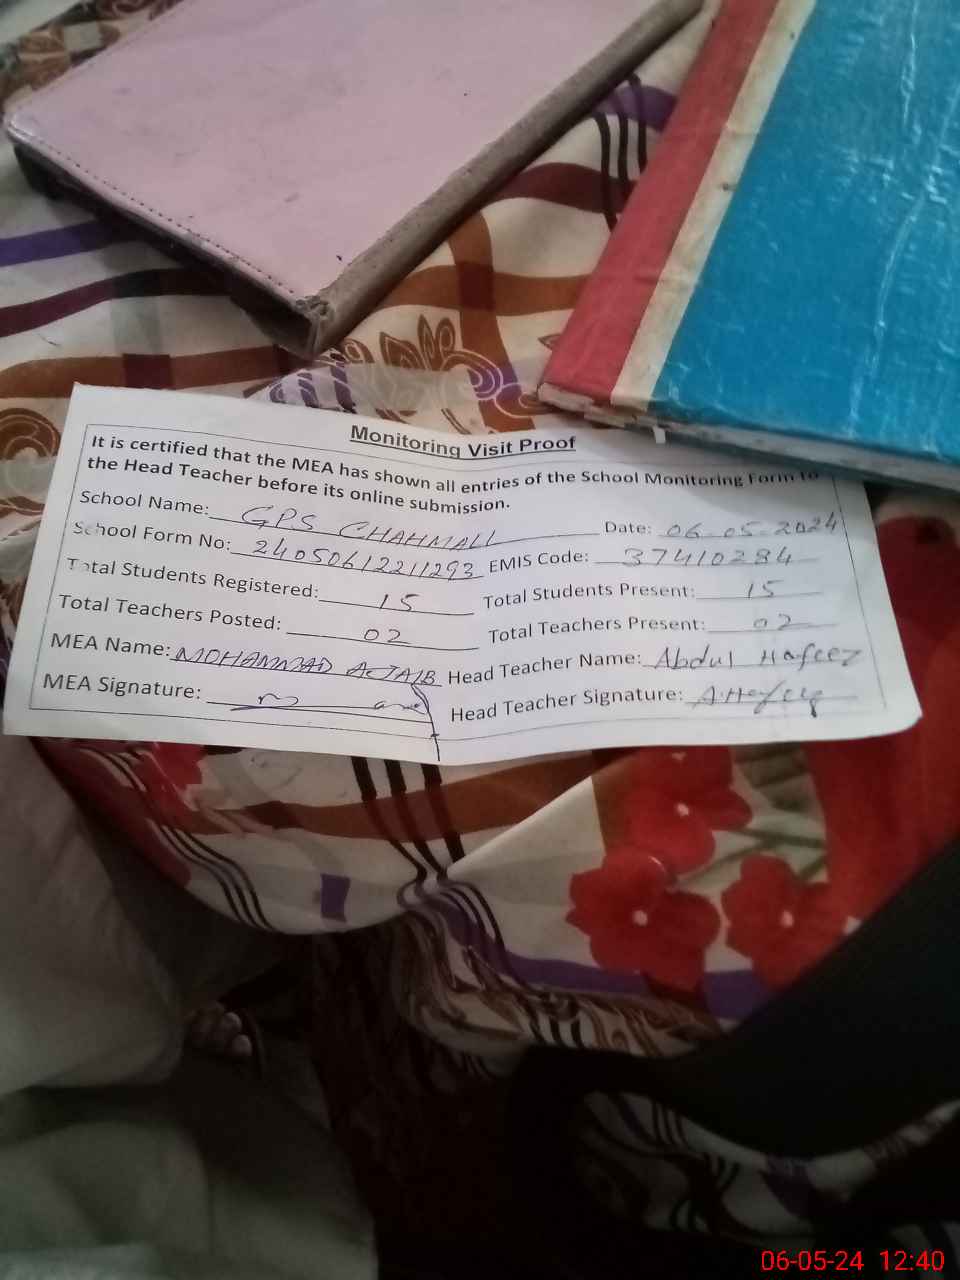 Monitoring Visit Proof
It is certified that the MEA has shown all entries of the School Monitoring Form to
the Head Teacher before its online submission.
School Name: GPS CHAHMALL Date: 06-05-2024
School Form No: 24050612211293 EMIS Code: 37410284
Total Students Registered: 15 Total Students Present: 15
Total Teachers Posted: 02 Total Teachers Present: 02
MEA Name: MOHAMMAD AJAIB Head Teacher Name: Abdul Hafeez
MEA Signature: Head Teacher Signature: A.Hafeez
06-05-24 12:40